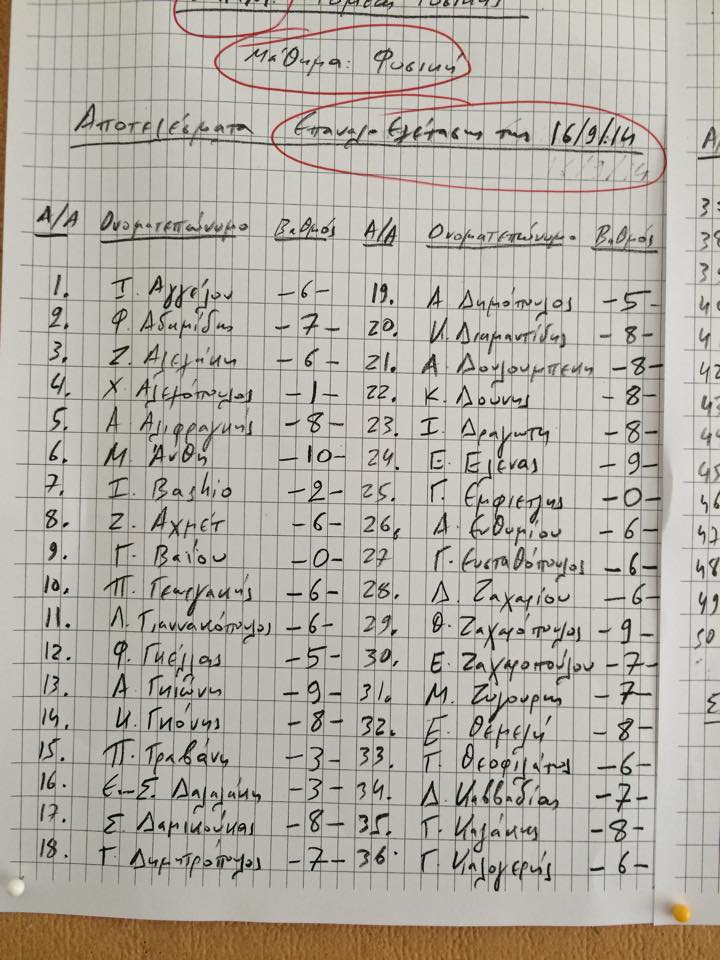 Μάθημα: Φυσική
Αποτελέσματα Επαναλο Εξέτασης της 16/9/14
Α/Α Ονοματεπώνυμο Βαθμός Α/Α Ονοματεπώνυμο Βαθμός
1. Ι. Αγγέλου -6- 19. Α. Δημόπουλος -5-
2. Φ. Αδαμίδης -7- 20. Κ. Διαμαντίδης -8-
3. Ζ. Αλεξάκη -6- 21. Α. Δουλουμπέκη -8-
4. Χ. Αλεξόπουλος -1- 22. Κ. Δούνης -8-
5. Α. Αλιφραγκής -8- 23. Ι. Δραγώτη -8-
6. Μ. Άνθη -10- 24. Ε. Έλενας -9-
7. Ι. Bashio -2- 25. Γ. Εμφιετζής -0-
8. Ζ. Αχμέτ -6- 26. Α. Ευθυμίου -6-
9. Γ. Βαΐου -0- 27 Γ. Ευσταθόπουλος -6-
10. Π. Γεωργακής -6- 28. Δ. Ζαχαρίου -6
11. Λ. Γιαννακόπουλος -6- 29. Θ. Ζαχαρόπουλος -9-
12. Φ. Γκέλλας -5- 30. Ε. Ζαχαροπούλου -7-
13. Α. Γκιώνη -9- 31. Μ. Ζυγούρης -7-
14. Κ. Γκόνης -8- 32. Ε. Θεμελή -8-
15. Π. Γραβάνη -3- 33. Γ. Θεοφιλάτος -6-
16. Ε.-Σ. Δαλαλάκη -3- 34. Δ. Καββαδίας -7-
17. Σ. Δαμικούκας -8- 35. Γ. Καλάκης -8-
18. Γ. Δημητρόπουλος -7- 36. Γ. Καλογερής -6-
Α/
45
46
47
48
49
50
Σ